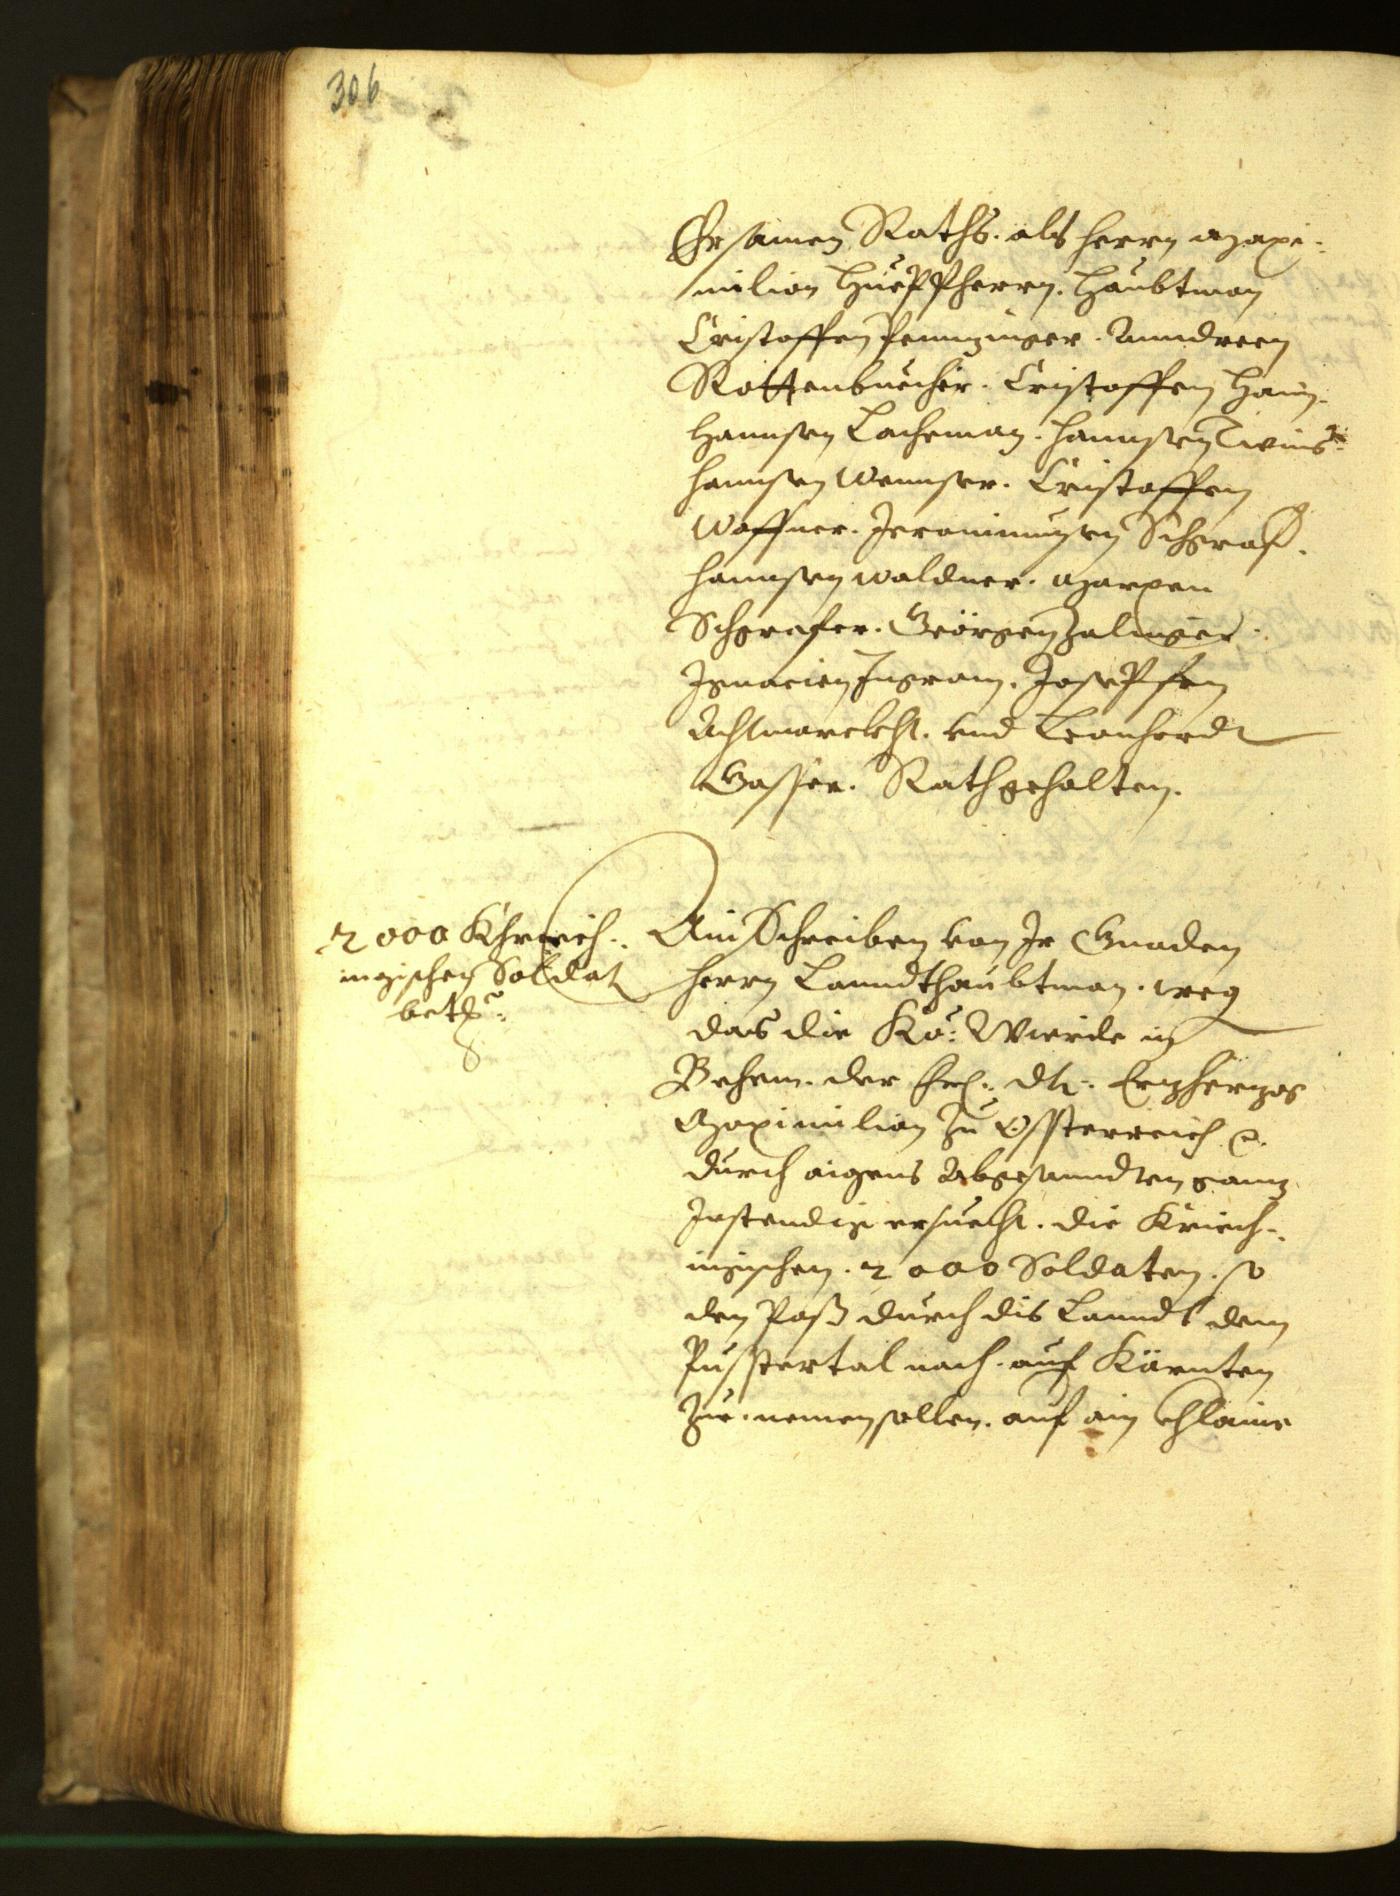 306
Ersamen Raths. als herrn Maxi-
milian Hueppherrn. Haubtman
Cristoffen Pennzinger. Anndreen
Rottenbuecher. Cristoffen Hain.
Hannsen Lacheman. Hannsen
Hannsen Wennser. Cristoffen
Waffner. Jeronimusen Schgraf.
Hannsen Waldner. Marxen
Schgrafer. Geörgen Zalinger.
Ignacien Ingram. Josephfen
Achtmarckht. und Leonhardt
Gasser. Rath gehalten.
2000 Khriech-
ingischen Soldat
betr:
Ain Schreiben von Ir Gnaden
herrn Lanndthaubtman. weg
das die Kö: Wierde in
Behem. der Frl: dht: Erzherzog
Maximilian zu Össterreich etc.
durch aigens Abgesanndten ganz
Instendig ersuecht. die Kriech-
ingischen. 2000 Soldaten. so
den Paß durch dis Lanndt dem
Pusstertal nach. auf Kärnten
zue. nemen sollen. auf ain khlaine